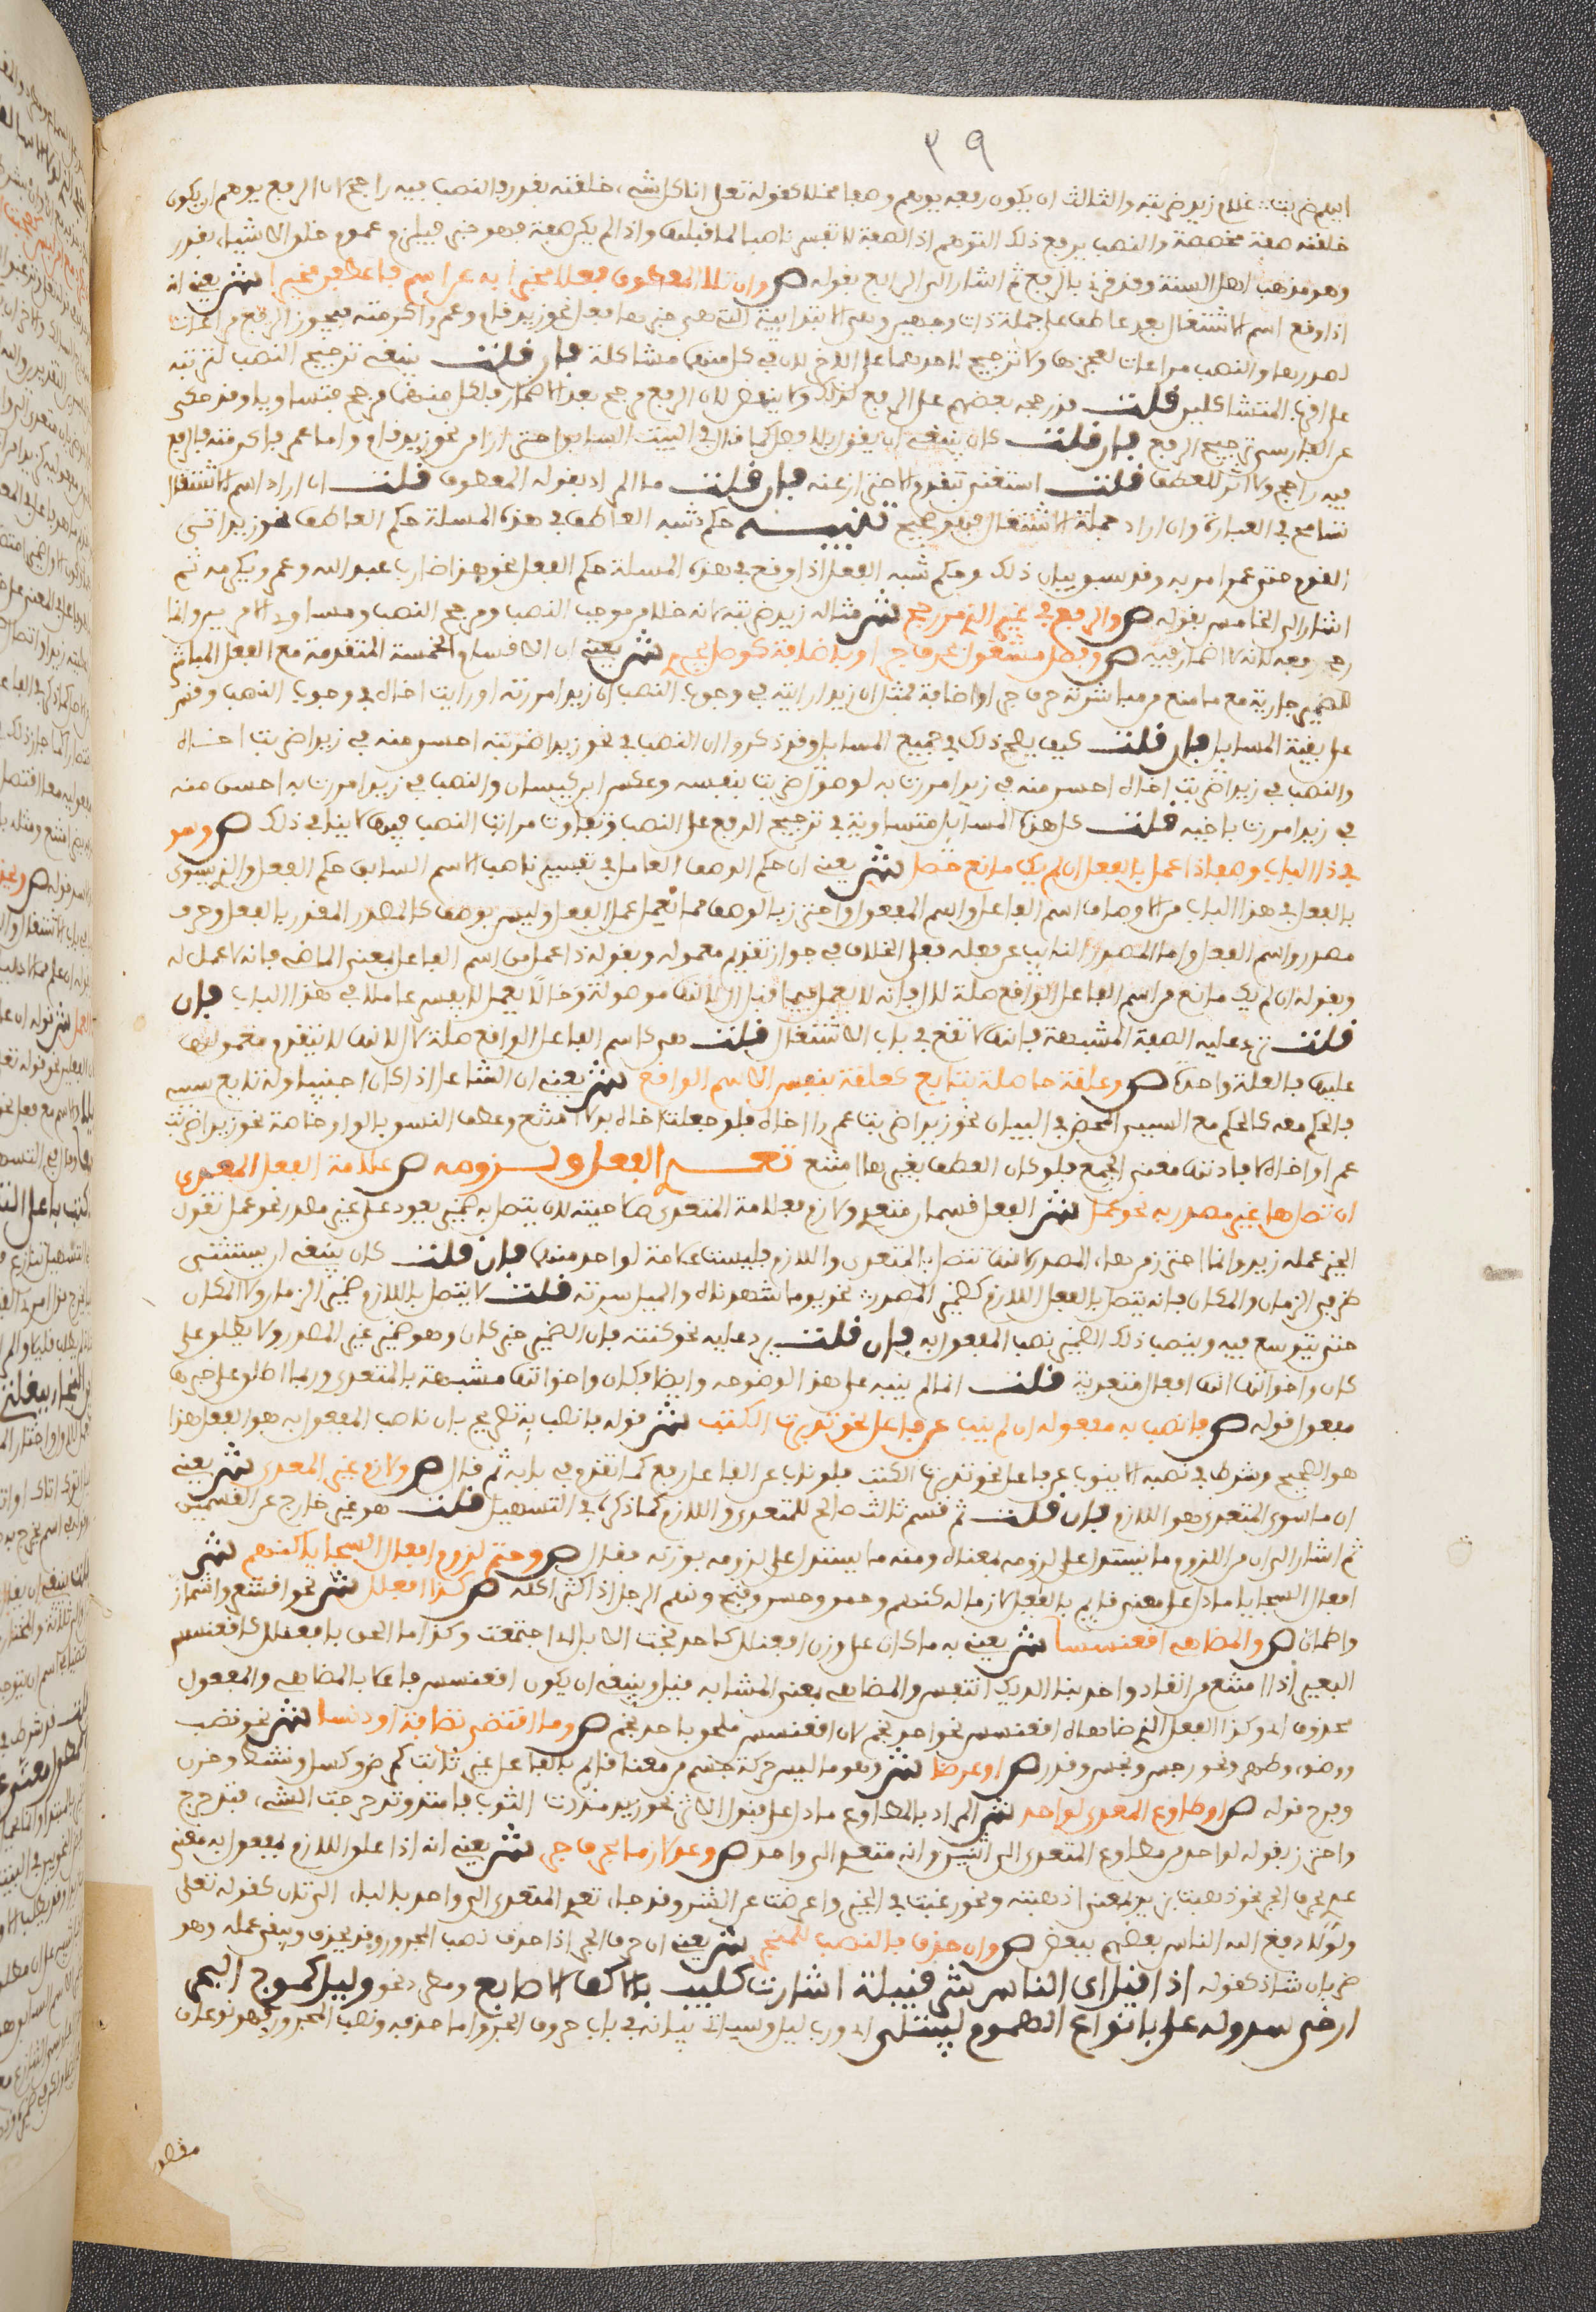 ٣٩
ايهم ضربت غلام زيد ضربته والثالث ان يكون رفعه يوهم وصفا مخلا كقوله تعلى انا كل شيء خلقنه بقدر والنصب فيه راجح لان الرفع يوهم ان يكون
خلقنه صفة مخصصة والنصب يرفع ذلك التوهم اذ الصفة لا تفسر ناصبا لما قبلها واذا لم يكن صفة فهو خبر فيلزم عموم خلق الاشياء بقدر
وهو مذهب اهل السنة وقد قرئ بالرفع ثم اشار الى الرابع بقوله ص وان تلا المعطوف فعلا مخبرا به عن اسم فاعطفن مخيرا ش يعني انه
اذا وقع اسم الاشتغال بعد عاطف على جملة ذات وجهين وهي الابتدائية التي خبرها فعل نحو زيد قام وعمرو اكرمته فيجوز الرفع مراعات
لصدرها والنصب مراعات لعجزها ولا ترجيح لاحدهما على الاخر لان في كل منهما مشاكلة فان قلت ينبغي ترجيح النصب لترتبه
على اقرب المتشاكلين قلت قد رجحه بعضهم على الرفع لذلك ولا ينهض لان الرفع مرجح بعدم الاضمار فلكل منهما مرجح فتساويا وقد حكي
عن الفارسي ترجيح الرفع فان قلت كان ينبغي ان يقول بلا فصل كما قال في البيت السابق احترازا من نحو زيد قام واما عمر فاكرمته فالرفع
فيه راجح ولا اثر للعطف قلت استغنى بتقدم الاحتراز عنه فان قلت ما المراد بقوله المعطوف قلت ان اراد اسم الاشتغال
تسامح في العبارة وان اراد جملة الاشتغال فهو صحيح تنبيه حكم شبه العاطف في هذه المسلة حكم العاطف نحو زيد اتى
القوم حتى عمرا مر به وقد سبق بيان ذلك وحكم شبه الفعل اذا وقع في هذه المسلة حكم الفعل نحو هذا ضارب عبد الله وعمر ويكرمه ثم
اشار الى الخامس بقوله ص والرفع في غير الذي مر رجح ش مثاله زيد ضربته لانه خلا من موجب النصب ومرجح النصب ومساوي الامرين وانما
رجح رفعه لانه لا اضمار فيه ص وفصل مشغول بحرف جر او باضافة كوصل يجري ش يعني ان الاقسام الخمسة المتقدمة مع الفعل المباشر
للضمير جارية مع ما منع من مباشرته حرف جر او اضافة فمثل ان زيدا رايته في وجوب النصب ان زيدا مررت به او رايت اخاه في وجوب النصب وقس
على بقية المسايل فان قلت كيف يصح ذلك في جميع المسايل وقد ذكروا ان النصب في نحو زيدا ضربته احسن منه في زيدا ضربت اخاه
والنصب في زيدا ضربت اخاه احسن منه في زيدا مررت به لوصول ضربت بنفسه وعكس ابن كيسان والنصب في زيدا مررت به احسن منه
في زيدا مررت باخيه قلت كل هذه المسايل متساوية في ترجيح الرفع على النصب وتفاوت مراتب النصب فيها لا ينافي ذلك ص وسو
في ذا الباب وصفا ذا عمل بالفعل ان لم يك مانع حصل ش يعني ان حكم الوصف العامل في تفسير ناصب الاسم السابق حكم الفعل والذي يسوى
بالفعل في هذا الباب من الاوصاف اسم الفاعل واسم المفعول واحترز بالوصف مما يعمل عمل الفعل وليس بوصف كالمصدر المقدر بالفعل وحرف
مصدر واسم الفعل واما المصدر النائب عن فعله فعلى الخلاف في جواز تقديم معموله وبقوله ذا عمل من اسم الفاعل بمعنى الماضي فانه لا عمل له
وبقوله ان لم يك مانع من اسم الفاعل الواقع صلة لال فانه لا يعمل فيما قبل ال لانها موصولة وما لا يعمل لا يفسر عاملا في هذا الباب فان
قلت ترد عليه الصفة المشبهة فانها لا تقع في باب الاشتغال قلت هي كاسم الفاعل الواقع صلة لال لانها لا يتقدم معمولها
عليها فالعلة واحدة ص وعلقة حاصلة بتابع كعلقة بنفس الاسم الواقع ش يعني ان الشاغل اذا كان اجنبيا وله تابع سببي
فالحكم معه كالحكم مع السببي المحض في البيان نحو زيدا ضربت عمرا اخاه فلو جعلت اخاه بدلا امتنع وعطف النسق بالواو خاصة نحو زيدا ضربت
عمرا واخاه لافادتها معنى الجمع فلو كان العطف بغيرها امتنع تعدي الفعل ولزومه ص علامة الفعل المعدى
ان تصل ها غير مصدر به نحو عمل ش الفعل قسمان متعد ولازم فعلامة المتعدى صلاحيته لان يتصل به ضمير يعود على غير مصدر نحو عمل تقول
الخير عمله زيد وانما احترز من هاء المصدر لانها تتصل بالمتعدى واللازم فليست علامة لواحد منهما فان قلت كان ينبغي ان يستثني
ضميري الزمان والمكان فانه يتصل بالفعل اللازم كضمير المصدر نحو يوما شهدناه والميل سرته قلت لا يتصل باللازم ضمير الزمان ولا المكان
حتى يتوسع فيه وينصب ذلك الضمير نصب المفعول به فان قلت يرد عليه نحو كنته فان الضمير خبر كان وهو ضمير غير المصدر ولا يطلق على
كان واخواتها انها افعال متعدية قلت انما لم ينبه على هذا لوضوحه وايضا فكان واخواتها مشبهة بالمتعدى وربما اطلق على خبرها
مفعول قوله ص فانصب به مفعوله ان لم ينب عن فاعل نحو تدبرت الكتب ش قوله فانصب به تصريح بان ناصب المفعول به هو الفعل هذا
هو الصحيح وشرط في نصبه الا ينوب عن فاعل نحو تدبرت الكتب فلو ناب عن الفاعل رفع كما تقدم في بابه ثم قال ص ولازم غير المعدى ش يعني
ان ما سوى المتعدى هو اللازم فان قلت ثم قسم ثالث صالح للمتعدى واللازم كما ذكر في التسهيل قلت هو غير خارج عن القسمين
ثم اشار الى ان من اللزوم ما يستدل على لزومه بمعناه ومنه ما يستدل على لزومه بوزنه فقال ص وحتم لزوم افعال السجايا كنهم ش
افعال السجايا ما دل على معنى قايم بالفاعل لازم له ككرم وحمد وحسن وقبح ونهم الرجل اذا اكثر اكله ص كذا افعلل ش نحو اقشعر واشماز
واطمان ص والمضاهي اقعنسسا ش يعني به ما كان على وزن افعنلل كاحرنجمت الابل اذا اجتمعت وكذا ما الحق بافعنلل كاقعنسس
البعير اذا امتنع من انقياد واحرنبا الديك انتفش والمضاهي بمعنى المشابه قيل وينبغي ان يكون اقعنسس فاعلا بالمضاهي والمفعول
محذوف اي وكذا الفعل الذي ضاهاه اقعنسس نحو احرنجم لان اقعنسس ملحق باحرنجم ص وما اقتضى نظافة او دنسا ش نحو نظف
ووضؤ وطهر ونحو رجس ونجس وقذر ص او عرضا ش وهو ما ليس حركة جسم من معنى قايم بالفاعل غير ثابت كمرض وكسل ونشط وحزن
وفرح قوله ص او طاوع المعدى لواحد ش المراد بالمطاوع ما دل على قبول الاثر نحو زيد مددت الثوب فامتد ودحرجت الشيء فتدحرج
واحترز بقوله لواحد من مطاوع المتعدى الى اثنين وانه متعد الى واحد ص وعد لازما بحرف جر ش يعني انه اذا علق اللازم بمفعول به معنى
عدي بحرف الجر نحو ذهبت بزيد بمعنى اذهبته ونحو رغبت في الخير واعرضت عن الشر وقد جاء تعدي المتعدى الى واحد بالباء الى ثان كقوله تعلى
ولولا دفع الله الناس بعضهم ببعض ص وان حذف فالنصب للمنجر ش يعني ان حرف الجر اذا حذف نصب المجرور وقد يحذف ويبقى عمله وهو
ضربان شاذ كقوله اذا قيل اي الناس شر قبيلة اشارت كليب بالاكف الاصابع ومطرد نحو وليل كموج البحر
ارخى سدوله علي بانواع الهموم ليبتلي اي ورب ليل وسياتي بيانه في باب حروف الجر واما حذفه ونصب المجرور فهو نوعان